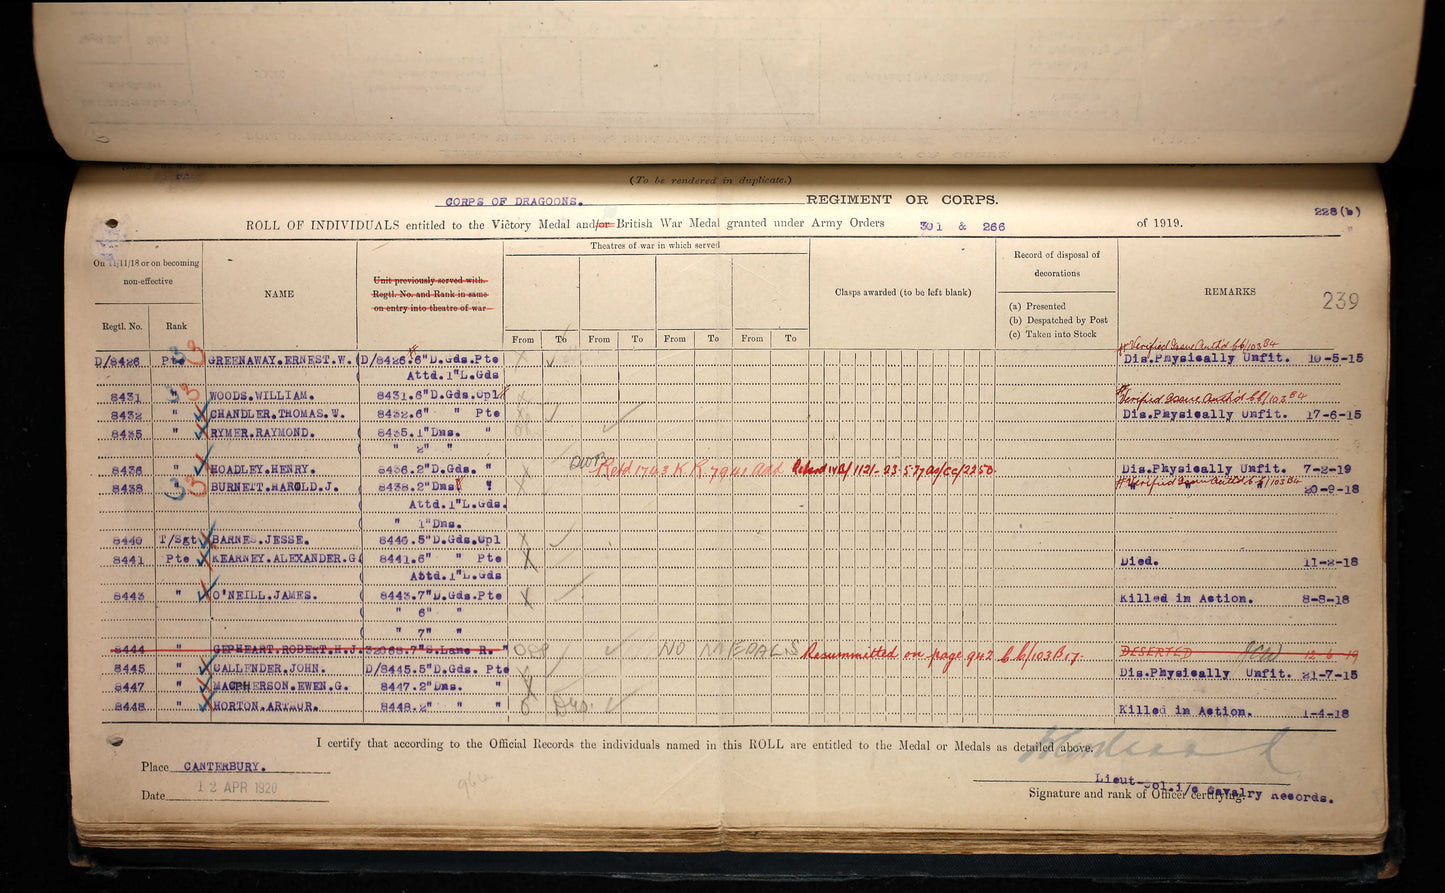 (To be rendered in duplicate.)
CORPS OF DRAGOONS. REGIMENT OR CORPS.
228(b)
ROLL OF INDIVIDUALS entitled to the Victory Medal and/or British War Medal granted under Army Orders 301 & 266 of 1919.
On 11/11/18 or on becoming non-effective
Regtl. No. Rank
NAME
Unit previously served with. Regtl. No. and Rank in same on entry into theatre of war
Theatres of war in which served
From To From To From To From To
Clasps awarded (to be left blank)
Record of disposal of decorations
(a) Presented
(b) Despatched by Post
(c) Taken into Stock
REMARKS
239
Verified Issue Auth'd 66/103 B4
D/8426 Pte GREENAWAY.ERNEST.W. (D/8426.6"D.Gds.Pte Dis.Physically Unfit. 10-5-15
Attd.1"L.Gds
8431 " WOODS.WILLIAM. 8431.6"D.Gds.Cpl Verified Issue Auth'd 66/103 B4
8432 " CHANDLER.THOMAS.W. 8432.6" " Pte Dis.Physically Unfit. 17-6-15
8435 " RYMER.RAYMOND. 8435.1"Dns. "
" 2" "
8436 " HOADLEY.HENRY. 8436.2"D.Gds. " Dis.Physically Unfit. 7-2-19
8438 " BURNETT.HAROLD.J. 8438.2"Dns. " Verified Issue Auth'd 66/103 B4 " " " 20-9-18
Attd.1"L.Gds.
" 1"Dns.
8440 T/Sgt BARNES.JESSE. 8440.5"D.Gds.Cpl
8441 Pte KEARNEY.ALEXANDER.G( 8441.6" " Pte Died. 11-2-18
Attd.1"L.Gds
8443 " O'NEILL.JAMES. ( 8443.7"D.Gds.Pte Killed in Action. 8-8-18
( " 6" "
( " 7" "
8444 " GEPHEART.ROBERT.H.J. 32068.7"S.Lanc R. " NO MEDALS Resummitted on page 942 66/103 B17. DESERTED 12-6-19
8445 " CALLENDER.JOHN. D/8445.5"D.Gds. Pte Dis.Physically Unfit. 21-7-15
8447 " MACPHERSON.EWEN.G. 8447.2"Dns. "
8448 " HORTON.ARTHUR. 8448.2" " " Killed in Action. 1-4-18
I certify that according to the Official Records the individuals named in this ROLL are entitled to the Medal or Medals as detailed above.
Place CANTERBURY.
Date 12 APR 1920
964
Lieut-Col.i/c Cavalry Records.
Signature and rank of Officer certifying.